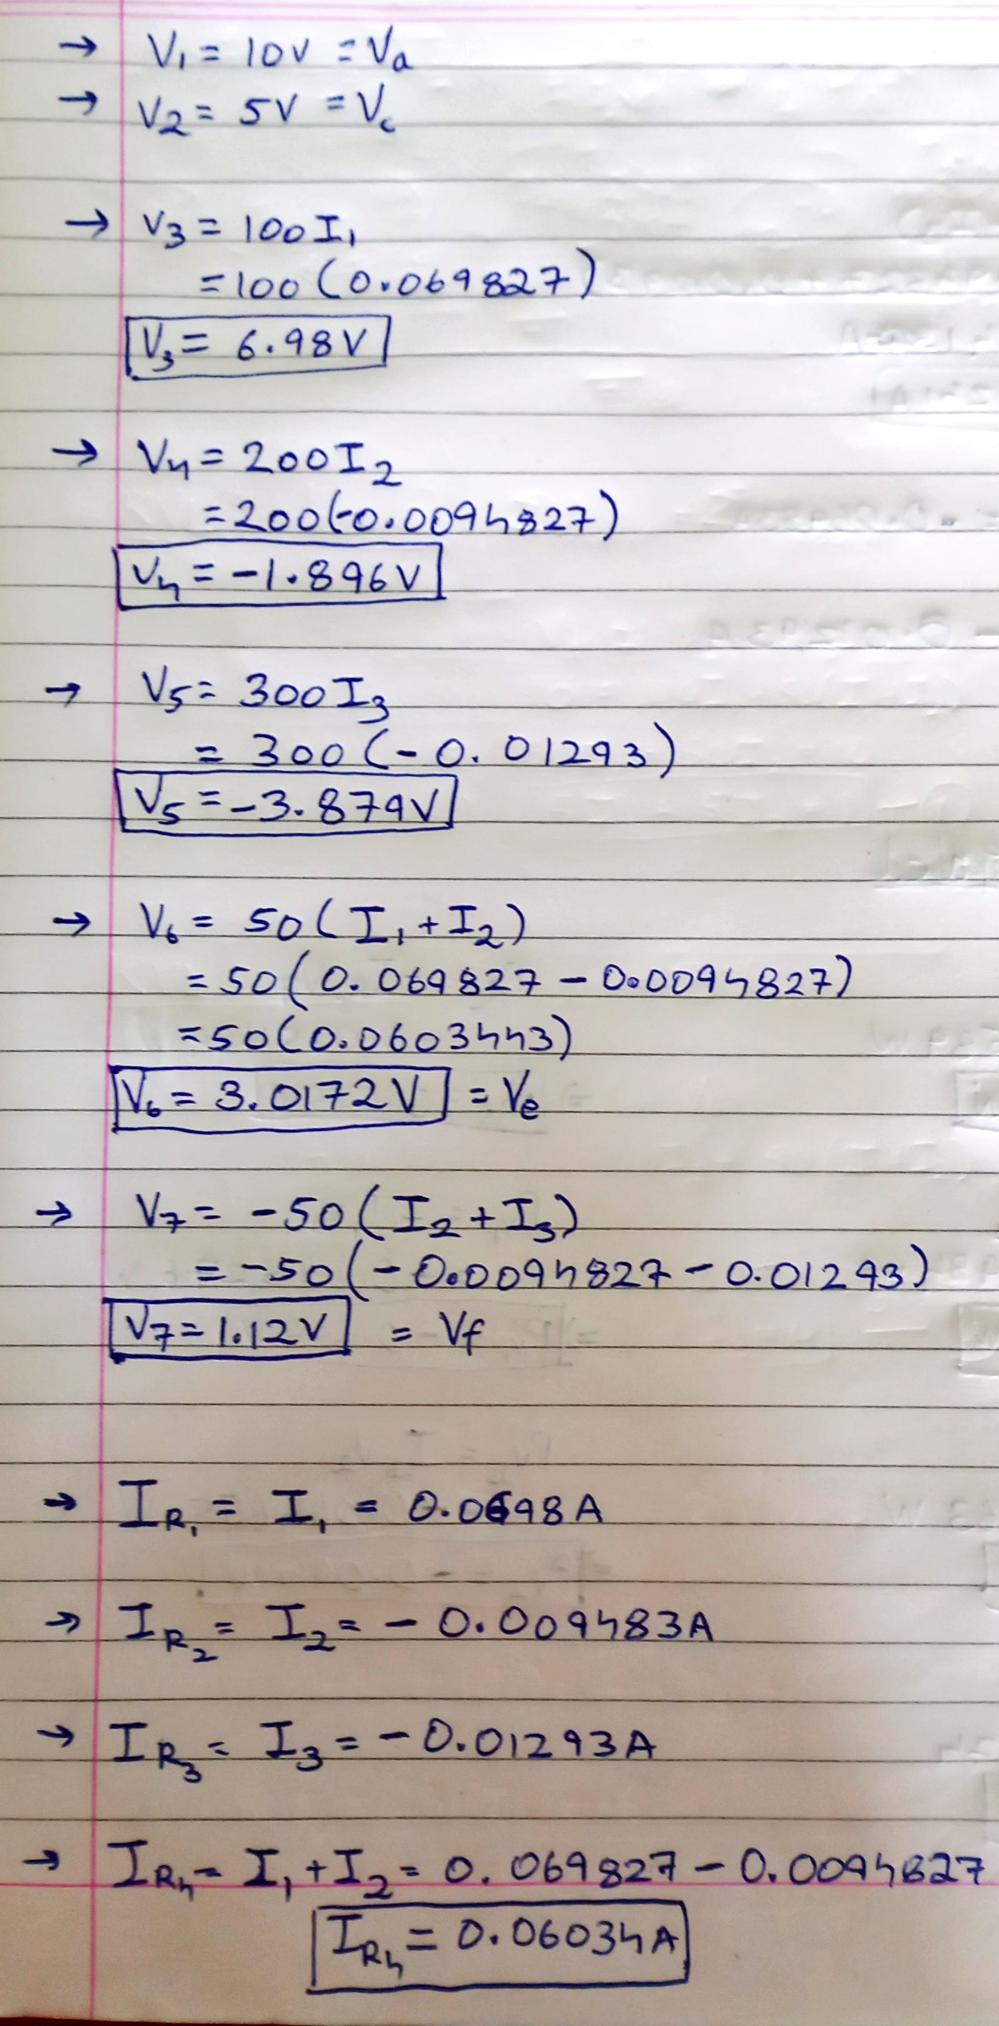 → V₁ = 10V = Va
→ V2 = 5V = Vc
→ V3 = 100I₁
= 100(0.069827)
V₃ = 6.98V
→ V4 = 200I₂
= 200(-0.0094827)
V4 = -1.896V
→ V5 = 300I₃
= 300(-0.01293)
V5 = -3.879V
→ V₆ = 50(I₁+I₂)
= 50(0.069827 - 0.0094827)
= 50(0.0603443)
V₆ = 3.0172V = Ve
→ V₇ = -50(I₂+I₃)
= -50(-0.0094827 - 0.01293)
V₇ = 1.12V = Vf
→ I_R₁ = I₁ = 0.0698A
→ I_R₂ = I₂ = -0.009483A
→ I_R₃ = I₃ = -0.01293A
→ I_R₄ = I₁+I₂ = 0.069827 - 0.0094827
I_R₄ = 0.06034A